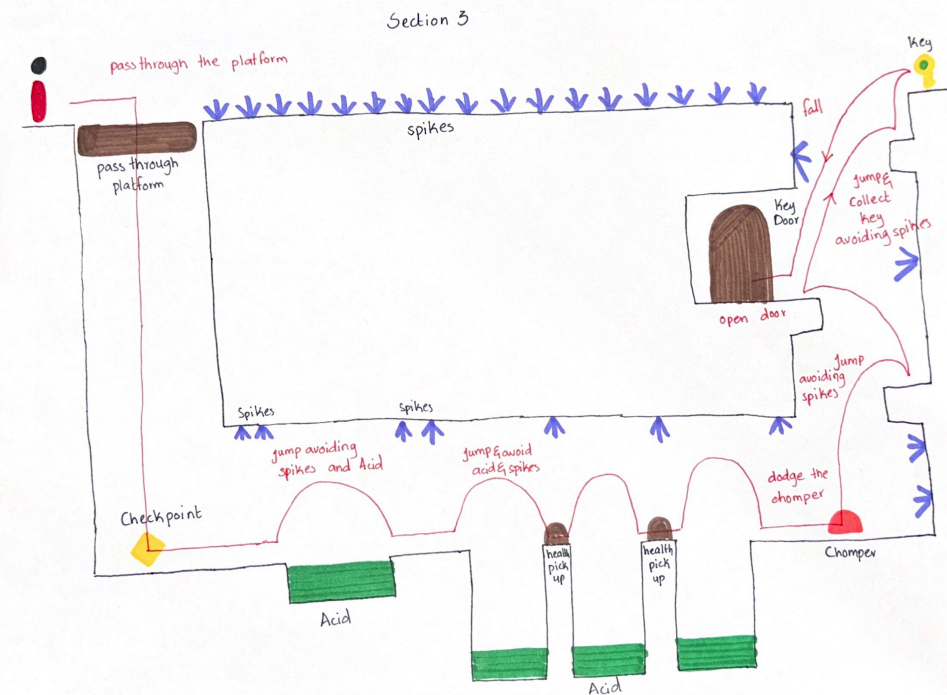 Section 3
Key
pass through the platform
fall
spikes
pass through
platform
Jump &
Collect
key
avoiding spikes
Key
Door
open door
Jump
avoiding
spikes
Spikes
spikes
jump avoiding
spikes and Acid
Jump & avoid
acid & spikes
dodge the
chomper
Checkpoint
health
pick
up
health
pick
up
Chomper
Acid
Acid